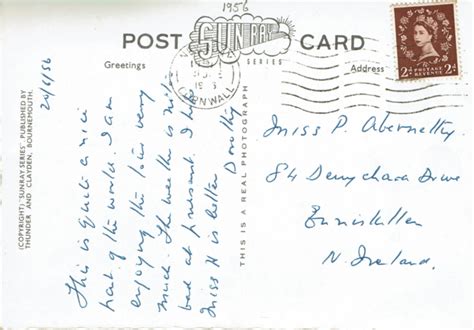 1956
POST CARD
SUN RAY
SERIES
Greetings
Address
CORNWALL
2D POSTAGE REVENUE 2D
(COPYRIGHT) "SUNRAY SERIES" PUBLISHED BY
THUNDER AND CLAYDEN, BOURNEMOUTH.
THIS IS A REAL PHOTOGRAPH
20/6/56
This is quite a nice
part of the world. I am
enjoying the tour very
much. The weather is not
bad at present. I hope
Miss H is better
Dorothy
Miss P. Abernethy
84 Drive
Enniskillen
N. Ireland.